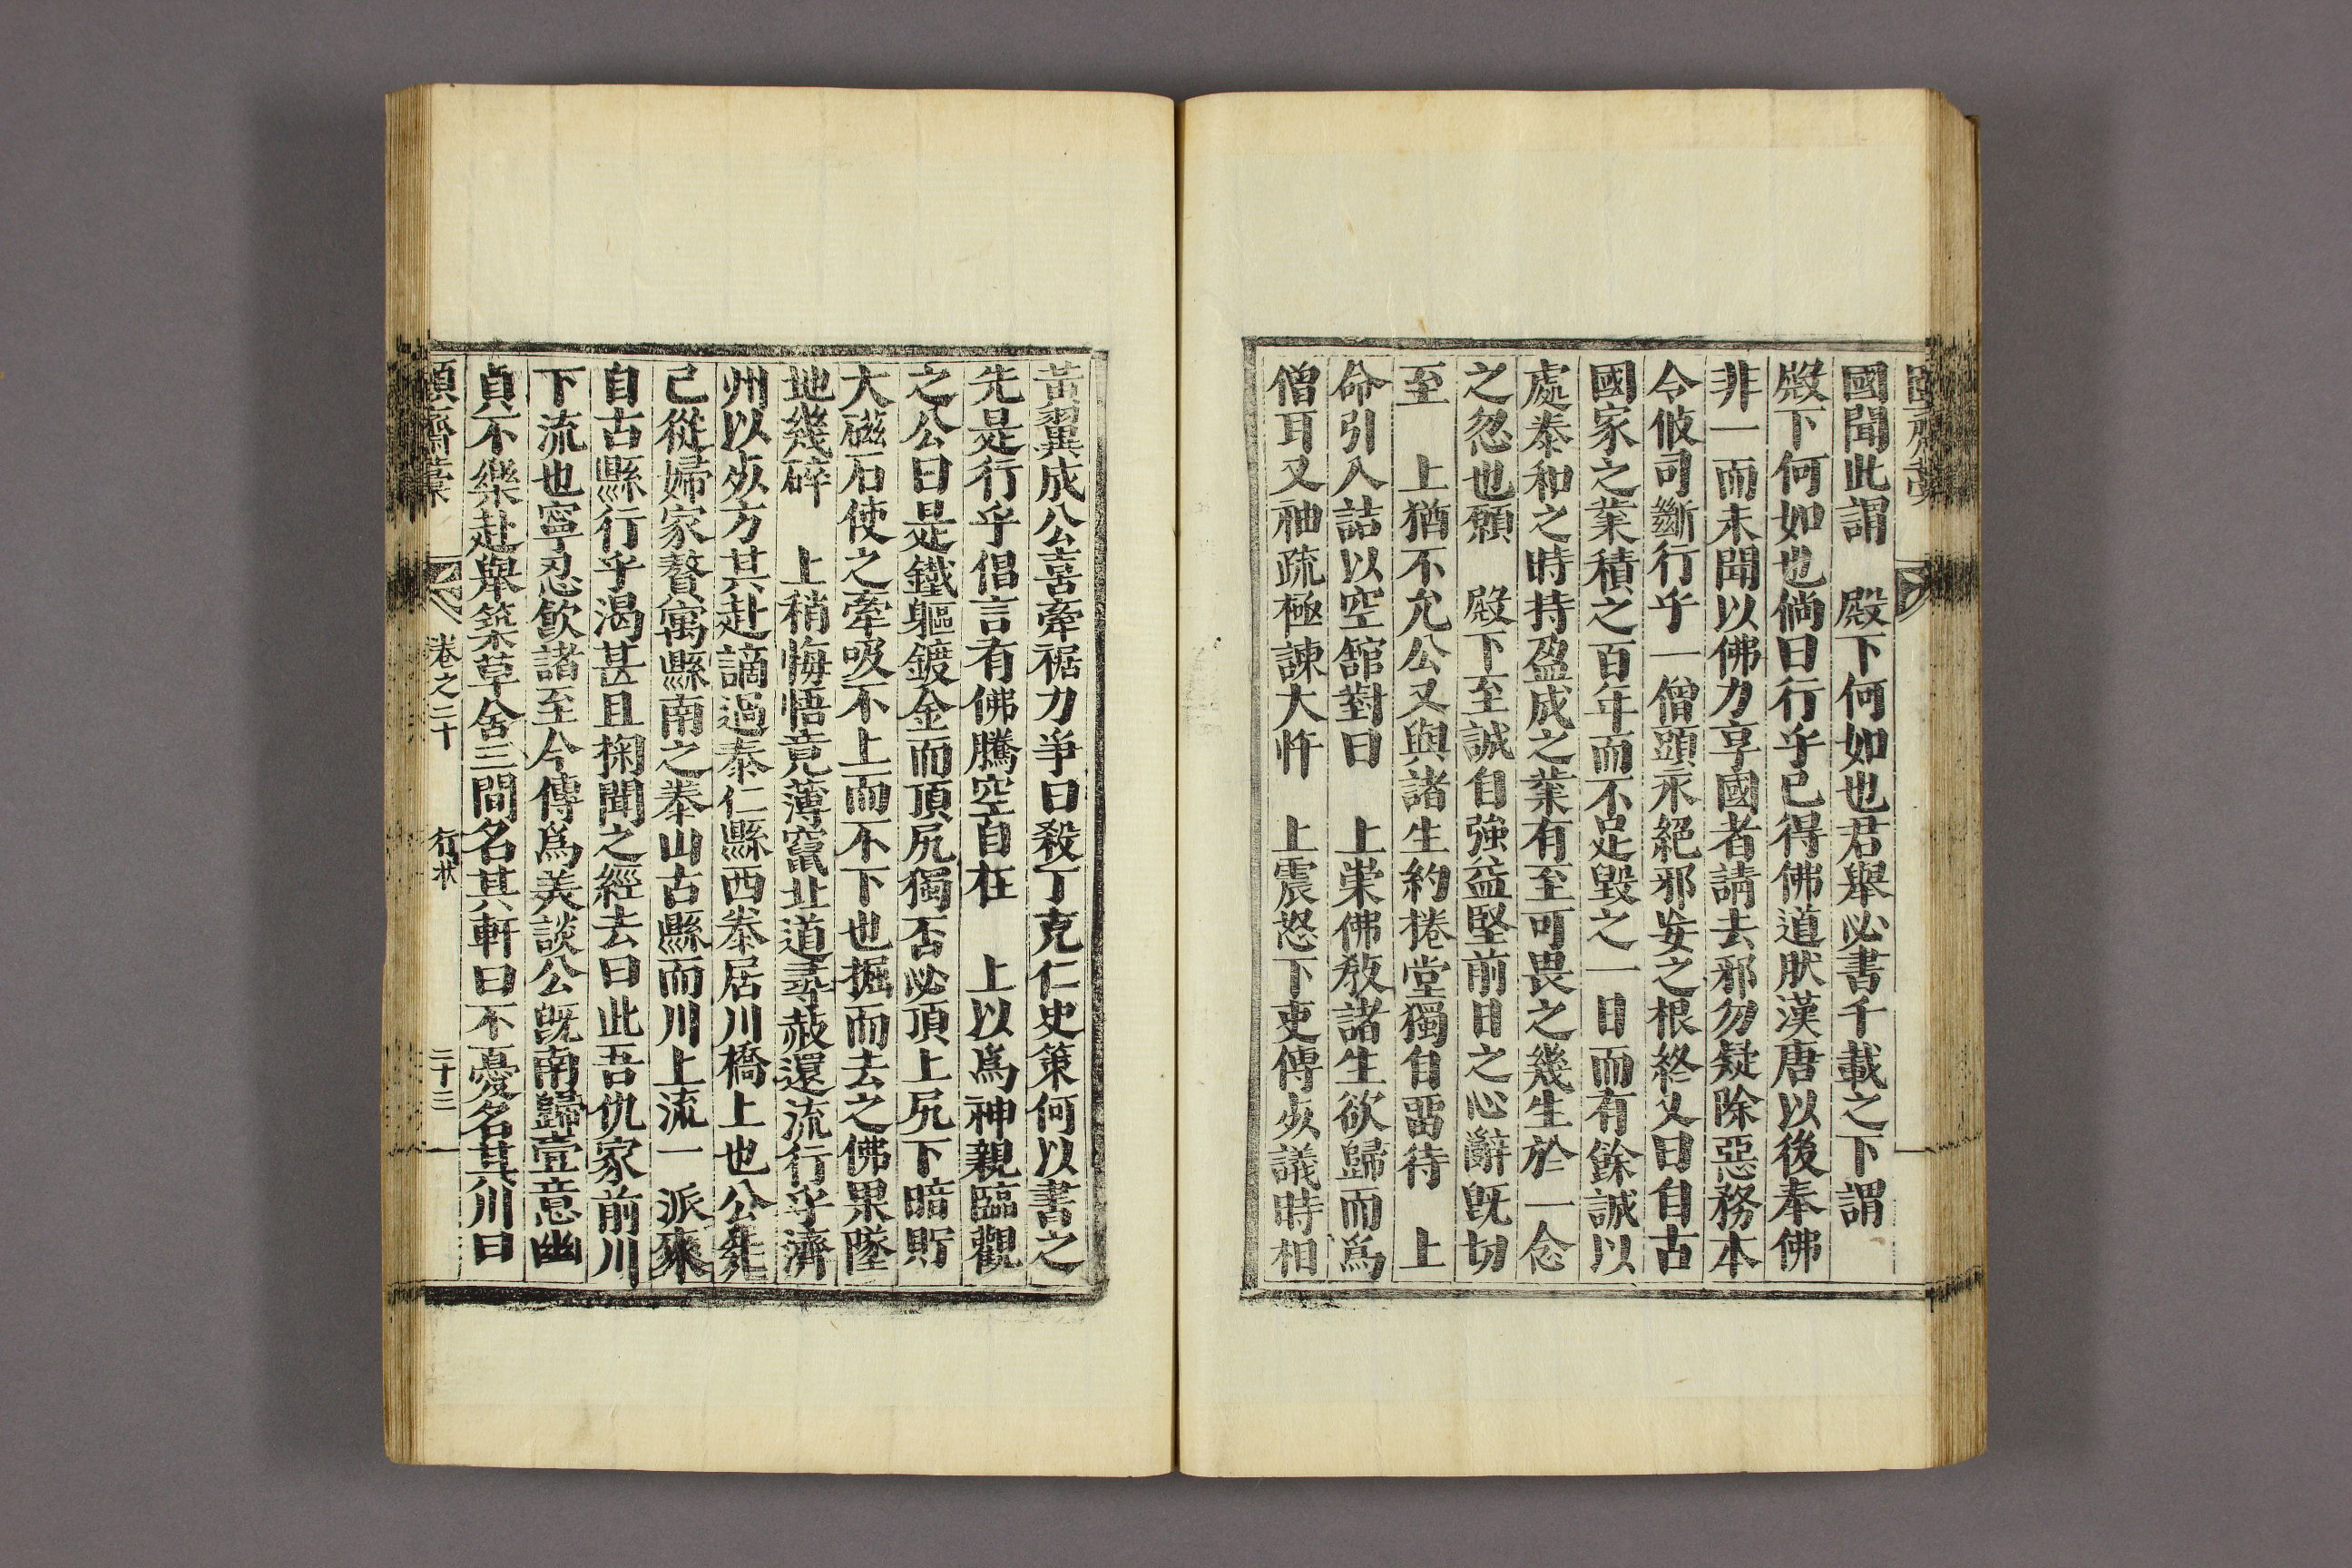 國聞此謂　殿下何如也君舉必書千載之下謂
殿下何如也倘曰行乎已得佛道肰漢唐以後奉佛
非一而未聞以佛力享國者請去邪勿疑除惡務本
令攸司斷行乎一僧頭永絕邪妄之根終又曰自古
國家之業積之百年而不足毀之一日而有餘誠以
處泰和之時持盈成之業有至可畏之幾生於一念
之忽也願　殿下至誠自強益堅前日之心辭旣切
至　上猶不允公又與諸生約捲堂獨自畱待　上
命引入詰以空舘對曰　上崇佛敎諸生欲歸而爲
僧耳又袖疏極諫大忤　上震怒下吏傅㱙議時相
黃翼成公喜牽裾力爭曰殺丁克仁史策何以書之
先是行乎倡言有佛騰空自在　上以爲神親臨觀
之公曰是鐵軀鍍金而頂尻獨否必頂上尻下暗貯
大磁石使之牽吸不上而不下也掘而去之佛果墜
地幾碎　上稍悔悟竟薄竄北道尋赦還流行乎濟
州以㱙方其赴謫過泰仁縣西泰居川橋上也公㷀
己從婦家贅寓縣南之泰山古縣而川上流一派來
自古縣行乎渴甚且掬聞之經去曰此吾仇家前川
下流也寧忍飮諸至今傳爲美談公旣南歸壹意幽
貞不樂赴舉築草舍三間名其軒曰不憂名其川曰
頤齋藁　卷之二十　行狀　二十三